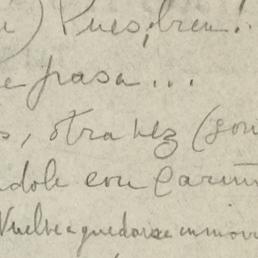 ) Pues, bien!
e pasa...
s, otra vez (son
dole con cariñ
Vuelve a quedarse inmóvi